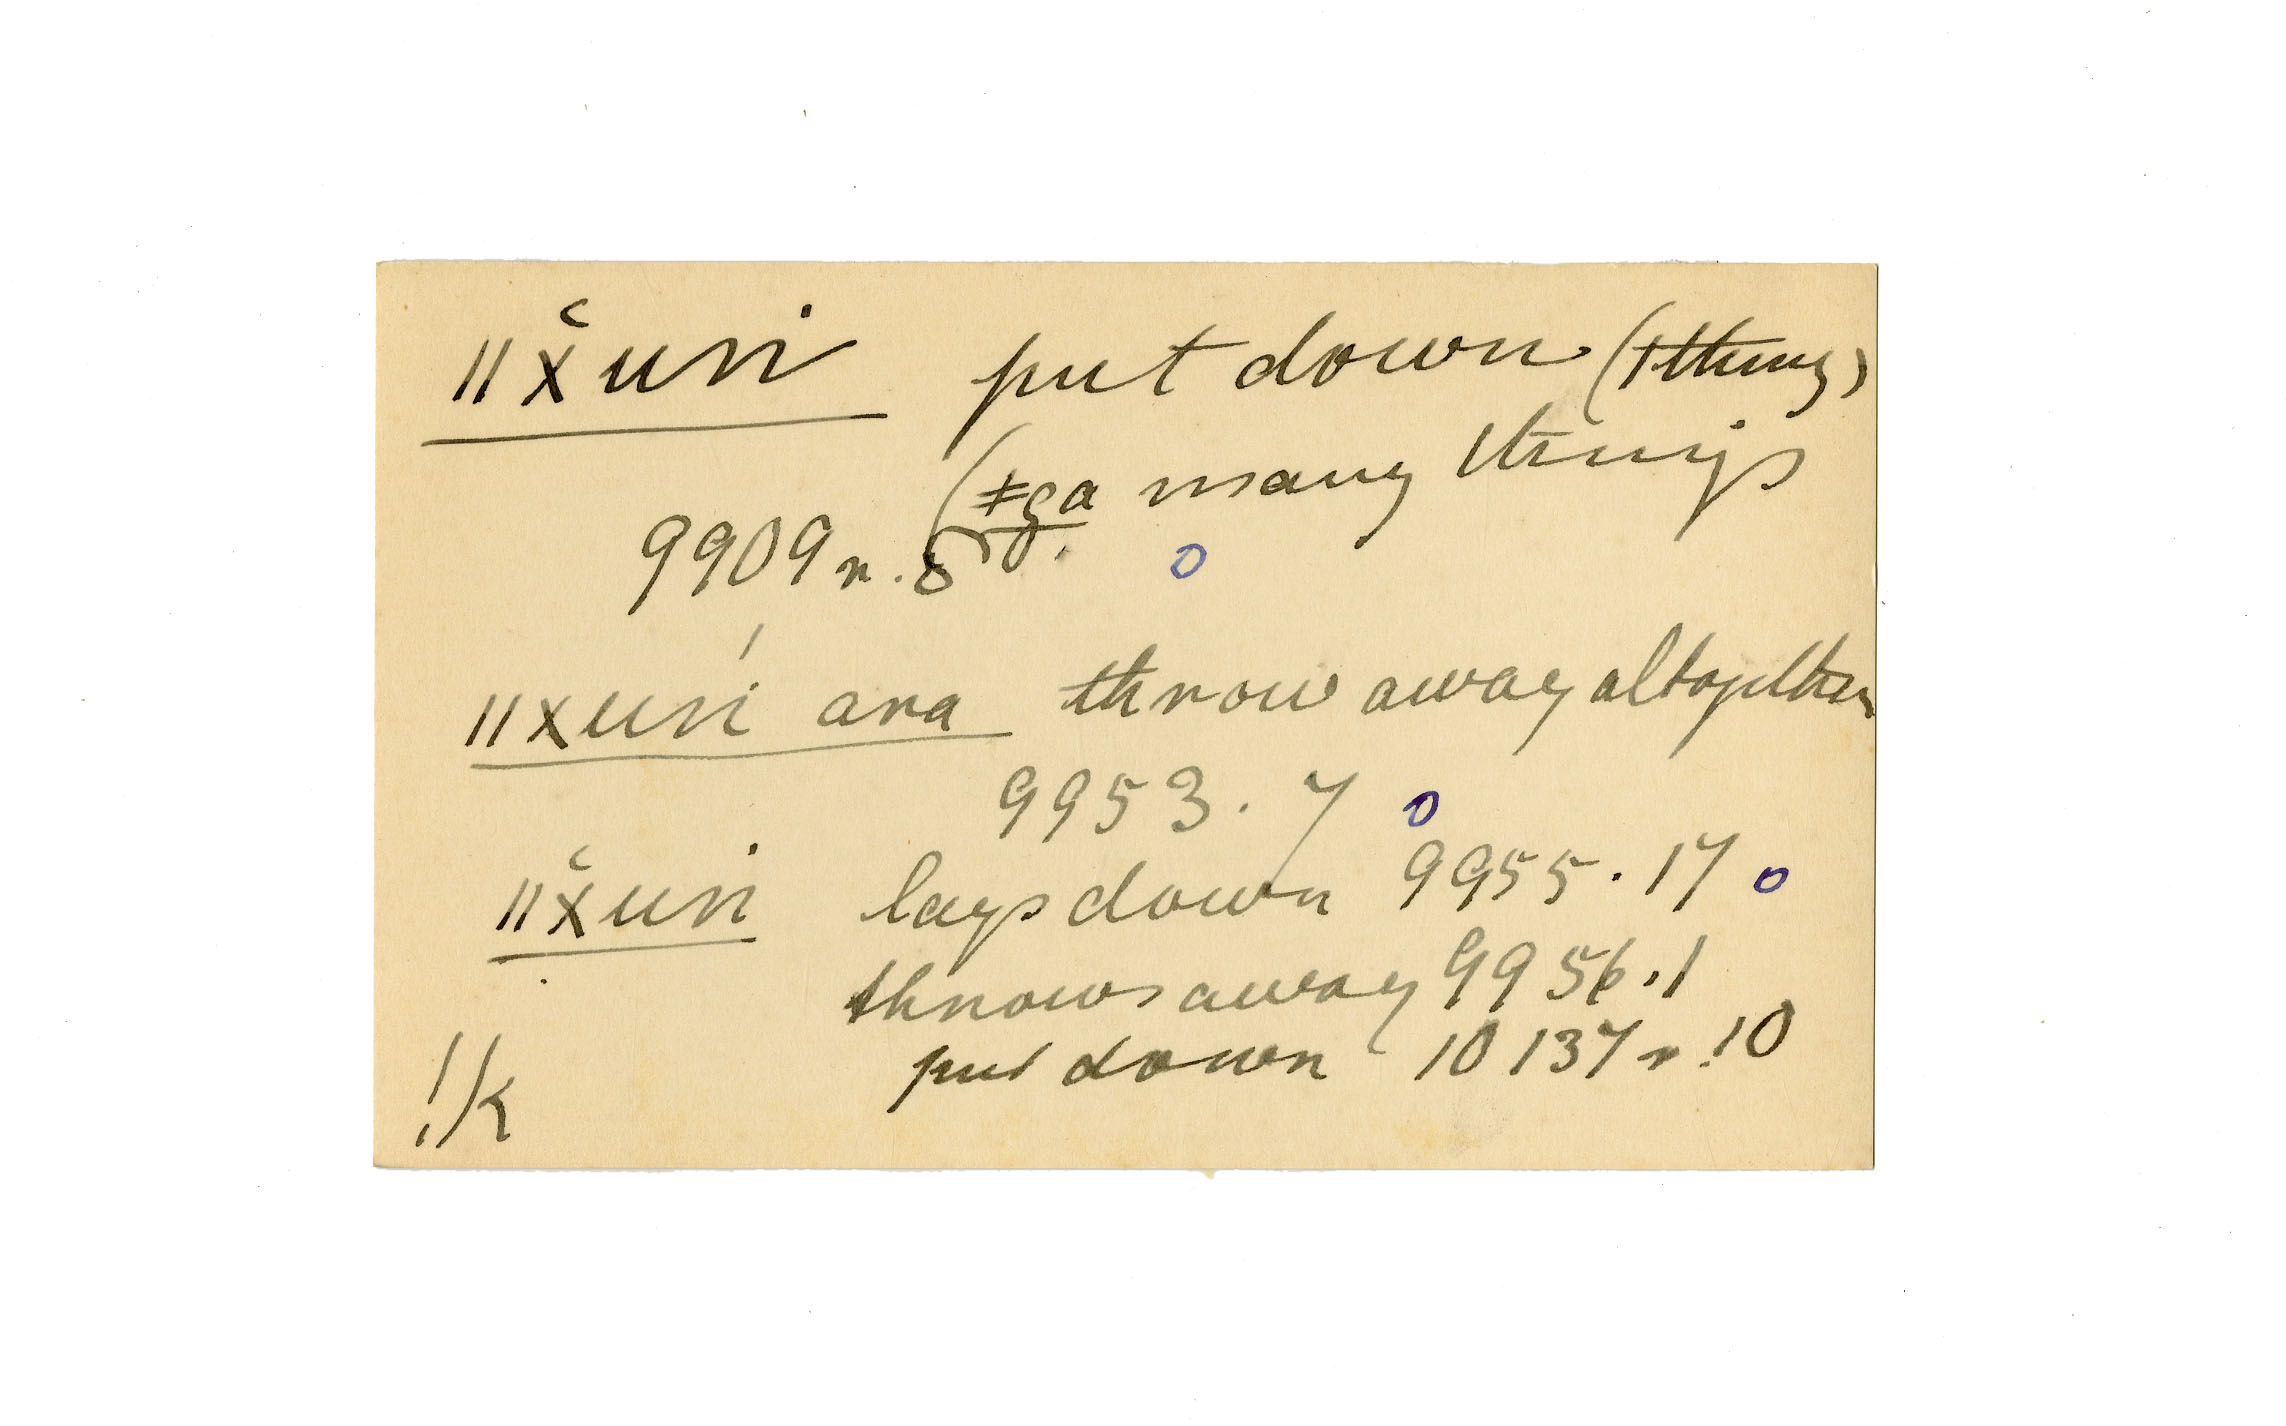 ǁx̆uri put down (1 thing)
(ǂga many things
9909 r. 8
ǁxuri ara throw away altogether
9953.7
ǁx̆uri lays down 9955.17
throws away 9956.1
put down 10137 r. 10
!k